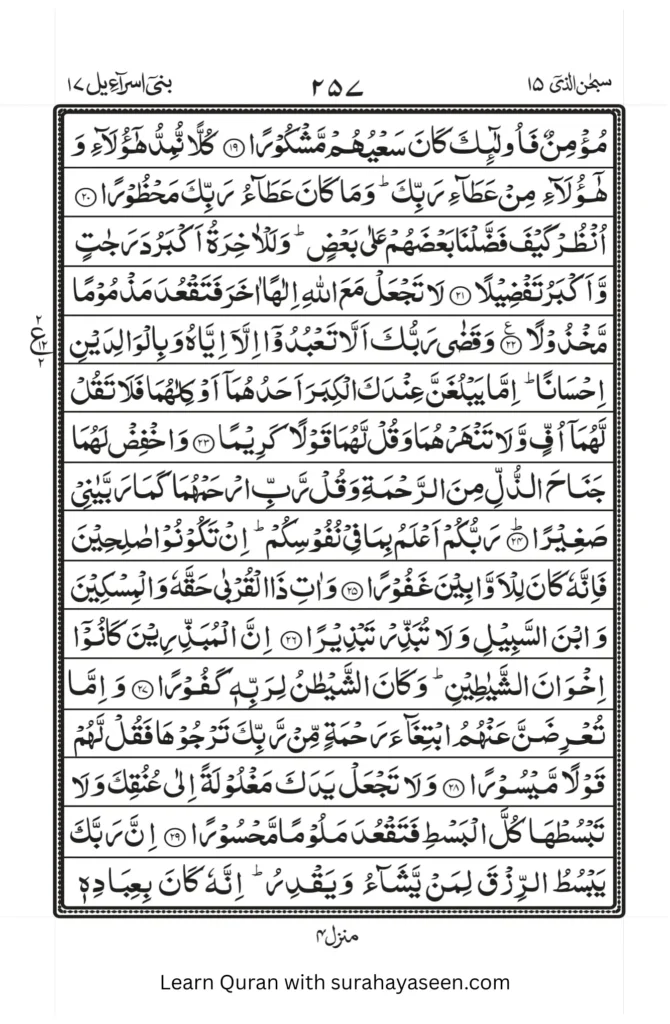 سبحٰن الذیٓ ۱۵
۲۵۷
بنیٓ اسرآءیل ۱۷
مُؤْمِنٌ فَاُولٰٓئِكَ كَانَ سَعْيُهُمْ مَّشْكُوْرًا ﴿۱۹﴾ كُلًّا نُّمِدُّ هٰٓؤُلَآءِ وَ
هٰٓؤُلَآءِ مِنْ عَطَآءِ رَبِّكَ ؕ وَمَا كَانَ عَطَآءُ رَبِّكَ مَحْظُوْرًا ﴿۲۰﴾
اُنْظُرْ كَيْفَ فَضَّلْنَا بَعْضَهُمْ عَلٰى بَعْضٍ ؕ وَلَلْاٰخِرَةُ اَكْبَرُ دَرَجٰتٍ
وَّاَكْبَرُ تَفْضِيْلًا ﴿۲۱﴾ لَا تَجْعَلْ مَعَ اللّٰهِ اِلٰهًا اٰخَرَ فَتَقْعُدَ مَذْمُوْمًا
مَّخْذُوْلًا ﴿۲۲﴾ وَقَضٰى رَبُّكَ اَلَّا تَعْبُدُوْٓا اِلَّآ اِيَّاهُ وَبِالْوَالِدَيْنِ
۲ ع ۱۲ ۲
اِحْسَانًا ؕ اِمَّا يَبْلُغَنَّ عِنْدَكَ الْكِبَرَ اَحَدُهُمَآ اَوْ كِلٰهُمَا فَلَا تَقُلْ
لَّهُمَآ اُفٍّ وَّلَا تَنْهَرْهُمَا وَقُلْ لَّهُمَا قَوْلًا كَرِيْمًا ﴿۲۳﴾ وَاخْفِضْ لَهُمَا
جَنَاحَ الذُّلِّ مِنَ الرَّحْمَةِ وَقُلْ رَّبِّ ارْحَمْهُمَا كَمَا رَبَّيٰنِيْ
صَغِيْرًا ﴿۲۴﴾ؕ رَبُّكُمْ اَعْلَمُ بِمَا فِيْ نُفُوْسِكُمْ ؕ اِنْ تَكُوْنُوْا صٰلِحِيْنَ
فَاِنَّهٗ كَانَ لِلْاَوَّابِيْنَ غَفُوْرًا ﴿۲۵﴾ وَاٰتِ ذَا الْقُرْبٰى حَقَّهٗ وَالْمِسْكِيْنَ
وَابْنَ السَّبِيْلِ وَلَا تُبَذِّرْ تَبْذِيْرًا ﴿۲۶﴾ اِنَّ الْمُبَذِّرِيْنَ كَانُوْٓا
اِخْوَانَ الشَّيٰطِيْنِ ؕ وَكَانَ الشَّيْطٰنُ لِرَبِّهٖ كَفُوْرًا ﴿۲۷﴾ وَاِمَّا
تُعْرِضَنَّ عَنْهُمُ ابْتِغَآءَ رَحْمَةٍ مِّنْ رَّبِّكَ تَرْجُوْهَا فَقُلْ لَّهُمْ
قَوْلًا مَّيْسُوْرًا ﴿۲۸﴾ وَلَا تَجْعَلْ يَدَكَ مَغْلُوْلَةً اِلٰى عُنُقِكَ وَلَا
تَبْسُطْهَا كُلَّ الْبَسْطِ فَتَقْعُدَ مَلُوْمًا مَّحْسُوْرًا ﴿۲۹﴾ اِنَّ رَبَّكَ
يَبْسُطُ الرِّزْقَ لِمَنْ يَّشَآءُ وَيَقْدِرُ ؕ اِنَّهٗ كَانَ بِعِبَادِهٖ
منزل ۴
Learn Quran with surahayaseen.com